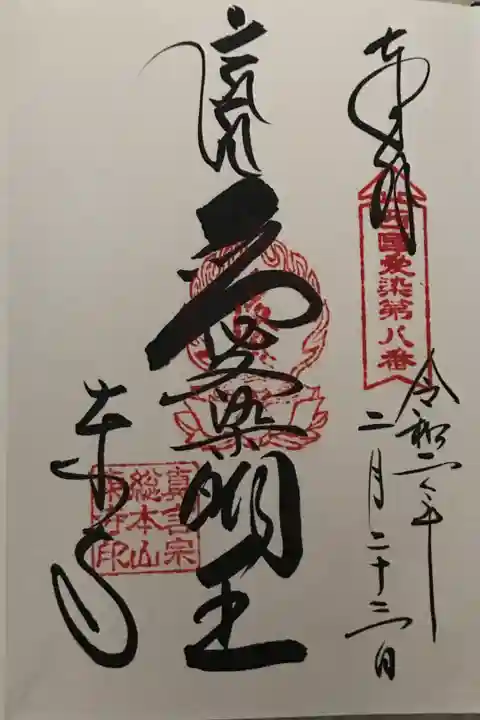 奉拝
西國愛染第八番
令和二年
二月二十三日
愛染明王
東寺
真言宗
総本山
東寺印